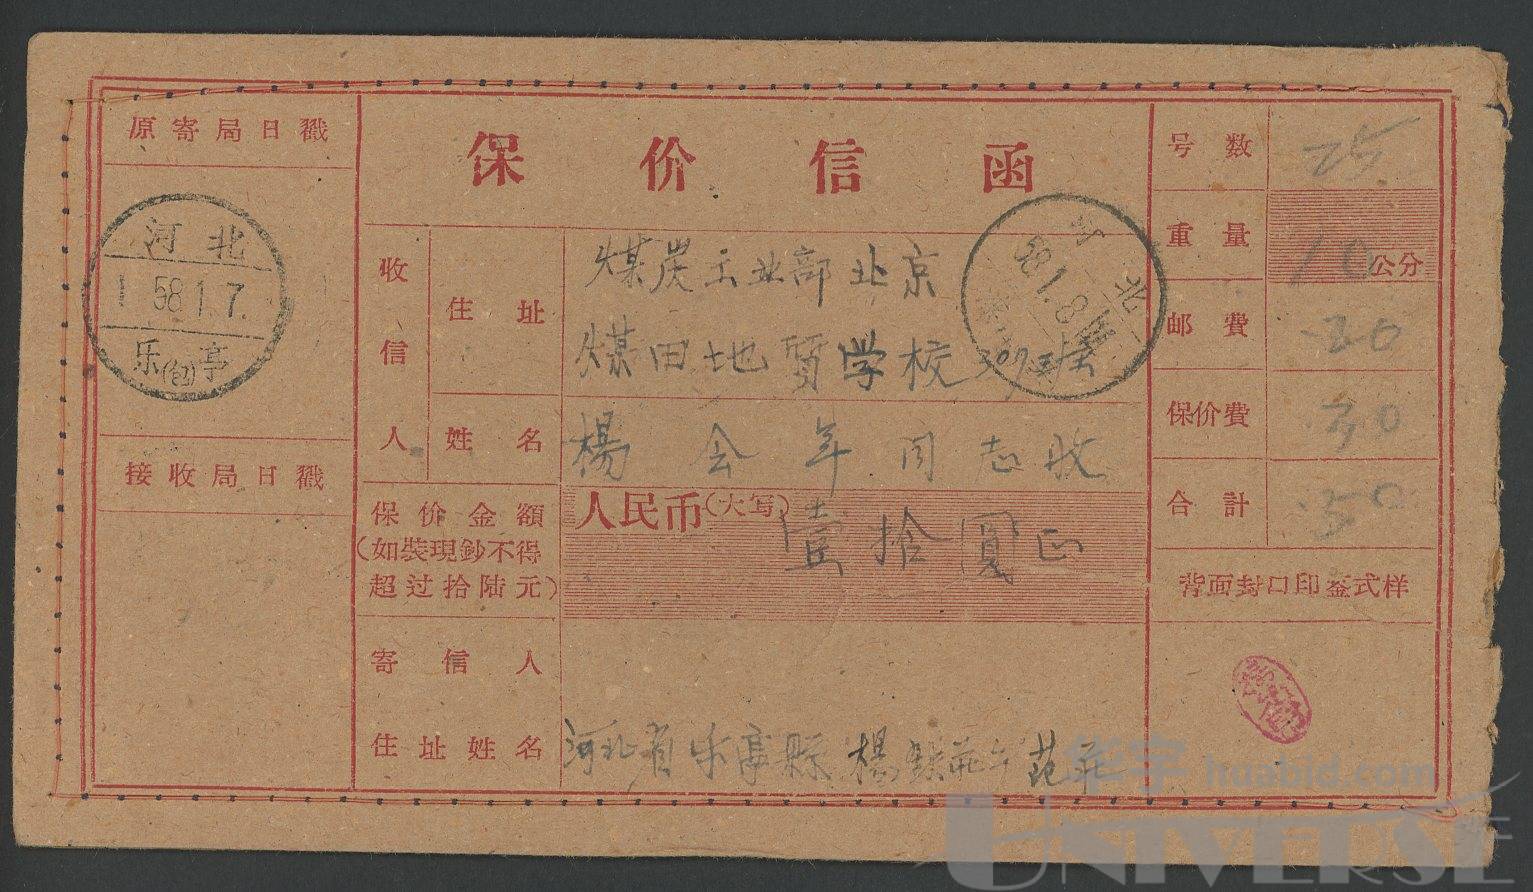 原寄局日戳
河北
1 58.1.7.
乐(包)亭
接收局日戳
保价信函
收信人
住址
煤炭工业部北京
煤田地質学校307
姓名
楊会年同志收
河北
58.1.8
保价金額
(如裝現鈔不得
超过拾陆元)
人民币(大写)壹拾圓正
寄信人
住址姓名
河北省乐亭縣楊
号数 25
重量 10公分
邮費 .20
保价費 .30
合計 .50
背面封口印鉴式样
华宇 huabid.com
UNIVERSE